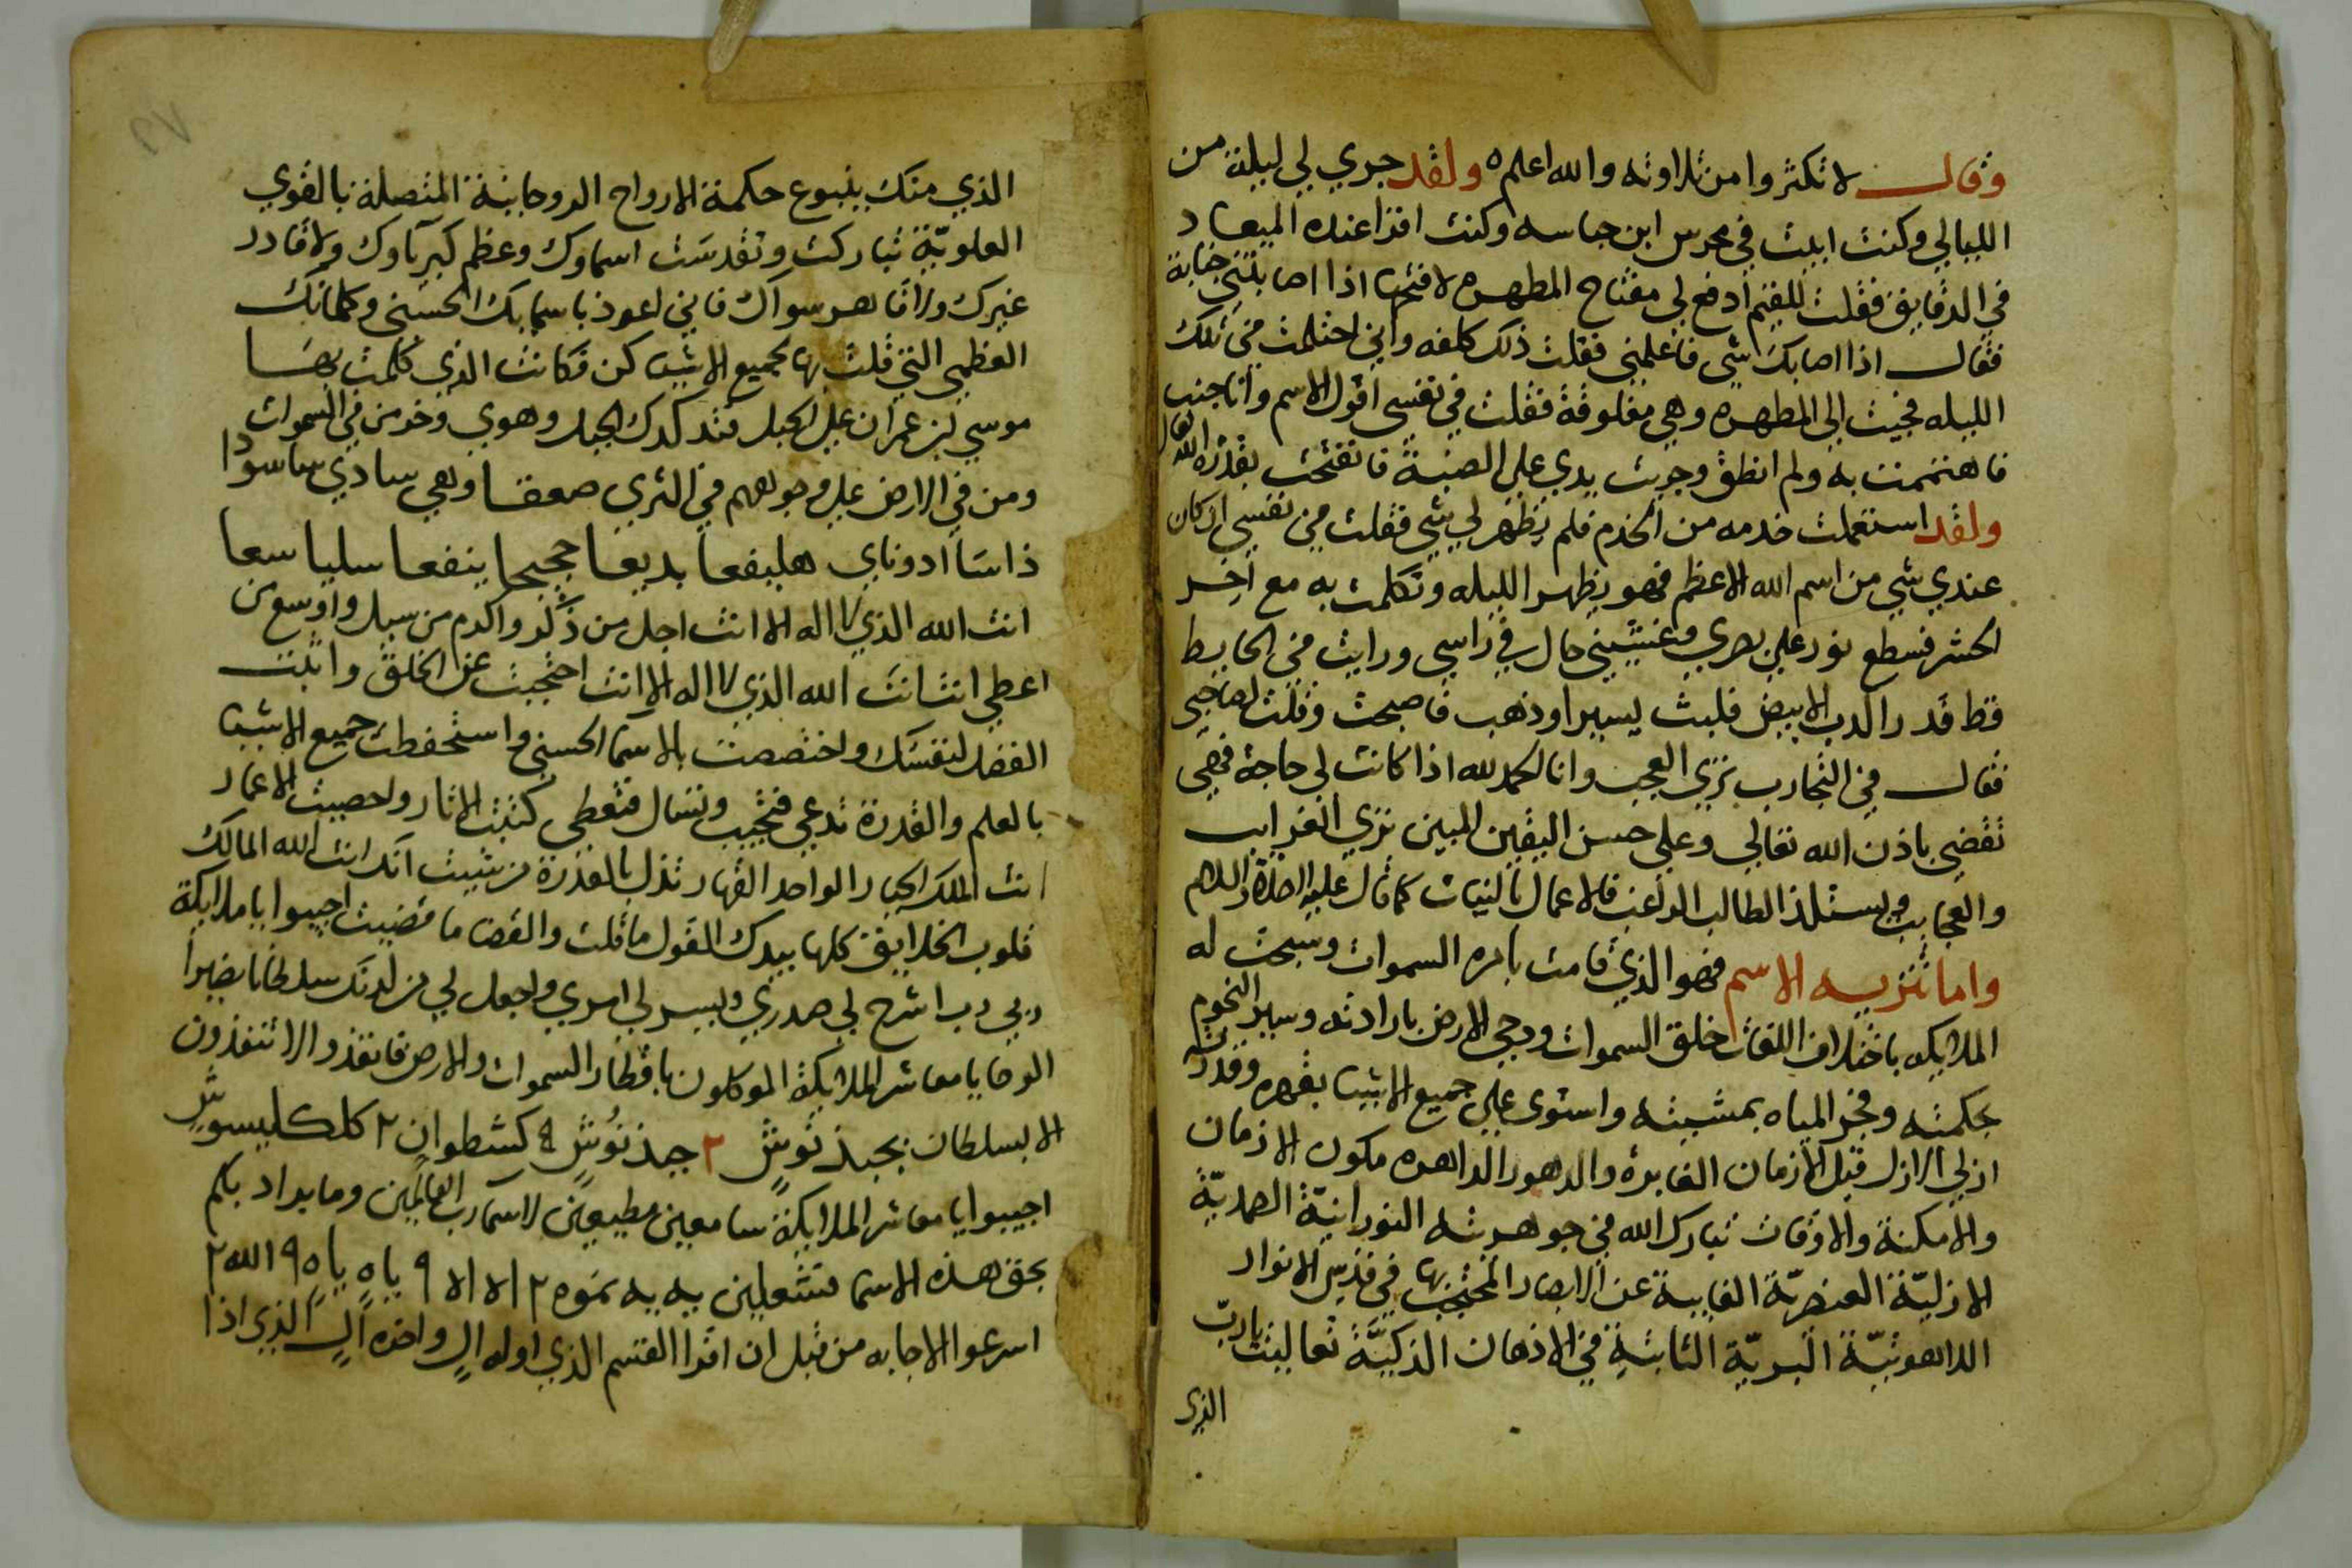 وقال لا تكثروا من تلاوته والله اعلم ٥ ولقد جري لي ليلة من
الليالي وكنت ابيت في محرس ابن حباسه وكنت اقرا عنده الميعاد
في الدقايق فقلت للقيم ادفع لي مفتاح المطهره لافتحها اذا اصابتني جنابة
فقال اذا اصابك شي فاعلمني فقلت ذلك كلفه واني احتلمت في تلك
الليله فجيت الى المطهره وهي مغلوقة فقلت في نفسي اقول الاسم وانا جنب
فاهتممت به ولم انطق وجريت يدي علي الضبة فانفتحت بقدرة الله تعال
ولقد استعملت خدمه من الخدم فلم يظهر لي شي فقلت في نفسي ان كان
عندي شي من اسم الله الاعظم فهو يظهر الليله وتكلمت به مع اخر
الحشر فسطع نور علي بصري وغشيني حال في راسي ورايت في الحايط
قط قدر الدب الابيض فلبث يسيرا وذهب فاصبحت وقلت لصاحبي
فقال في التجارب تري العجب وانا لحمد لله اذا كانت لي حاجة فهي
تقضي باذن الله تعالي وعلي حسن اليقين المبين تري الغرايب
والعجايب ويستلذ الطالب الراغب فالاعمال بالنيات كما قال عليه الصلاة والسلام
واما تنزيه الاسم فهو الذي قامت بامره السموات وسبحت له
الملايكه باختلاف اللغات خلق السموات ودحي الارض بارادته وسير النجوم
بحكمته وفجر المياه بمشيته واستوي علي جميع الاشيا بقهره وقدرته
ازلي الازل قبل الازمان الغابره والدهور الداهره مكون الازمان
والامكنة والاوقات تبارك الله في جوهرته النورانيّة الصمديّة
الازليّة العنصريّة الغايبة عن الابصار المحتجب بها في قدس الانوار
الداهوتيّة البريّة الثابتة في الاذهان الذكيّة تعاليت يا ربّ
الذي
الذي منك ينبوع حكمة الارواح الروحانية المتصلة بالقوي
العلويّة تباركت وتقدست اسماوك وعظم كبرياوك ولا قادر
غيرك ولا قاهر سواك فاني اعوذ باسمايك الحسني وكلماتك
العظمي التي قلت بها لجميع الاشيا كن فكانت الذي كلمت بها
موسي بن عمران علي الجبل فتدكدك الجبل وهوي وخر من في السموات
ومن في الارض علي وجوههم في الثري صعقا وهي سادي ساسودا
ذاسا ادوناي هليفعا بديعا حجيجا ينفعا سليا سعا
انت الله الذي لا اله الا انت اجل من ذكر واكرم من سيل واوسع من
اعطي انت انت الله الذي لا اله الا انت احتجبت عن الخلق وابلت
الفضل لنفسك واختصصت بالاسما الحسني واستحفظت جميع الاشيا
بالعلم والقدرة تدعي فتجيب وتسال فتعطي كتبت الاثار واحصيت الاعمار
انت الملك الجبار الواحد القهار تذل بالقدرة من شيت انك انت الله المالك
قلوب الخلايق كلها بيدك القول ما قلت والقضا ما قضيت اجيبوا يا ملايكة
ربي رب اشرح لي صدري ويسر لي امري واجعل لي من لدنك سلطانا نصيرا
الوحا يا معاشر الملايكة الموكلون باقطار السموات والارض فانفذوا لا تنفذون
الا بسلطان بجبذ نوش ٢ جبذ نوش ٤ كشطوان ٢ كلكليسوش
اجيبوا يا معاشر الملايكة سامعين مطيعين لاسما رب العالمين وما يراد بكم
بحق هذه الاسما فتشعلين يه يه نموه ٢ الا الا ٩ ياه ياه ٩ الله ٢
اسرعوا الاجابه من قبل ان اقرا القسم الذي اوله ال واخره ال الذي اذا